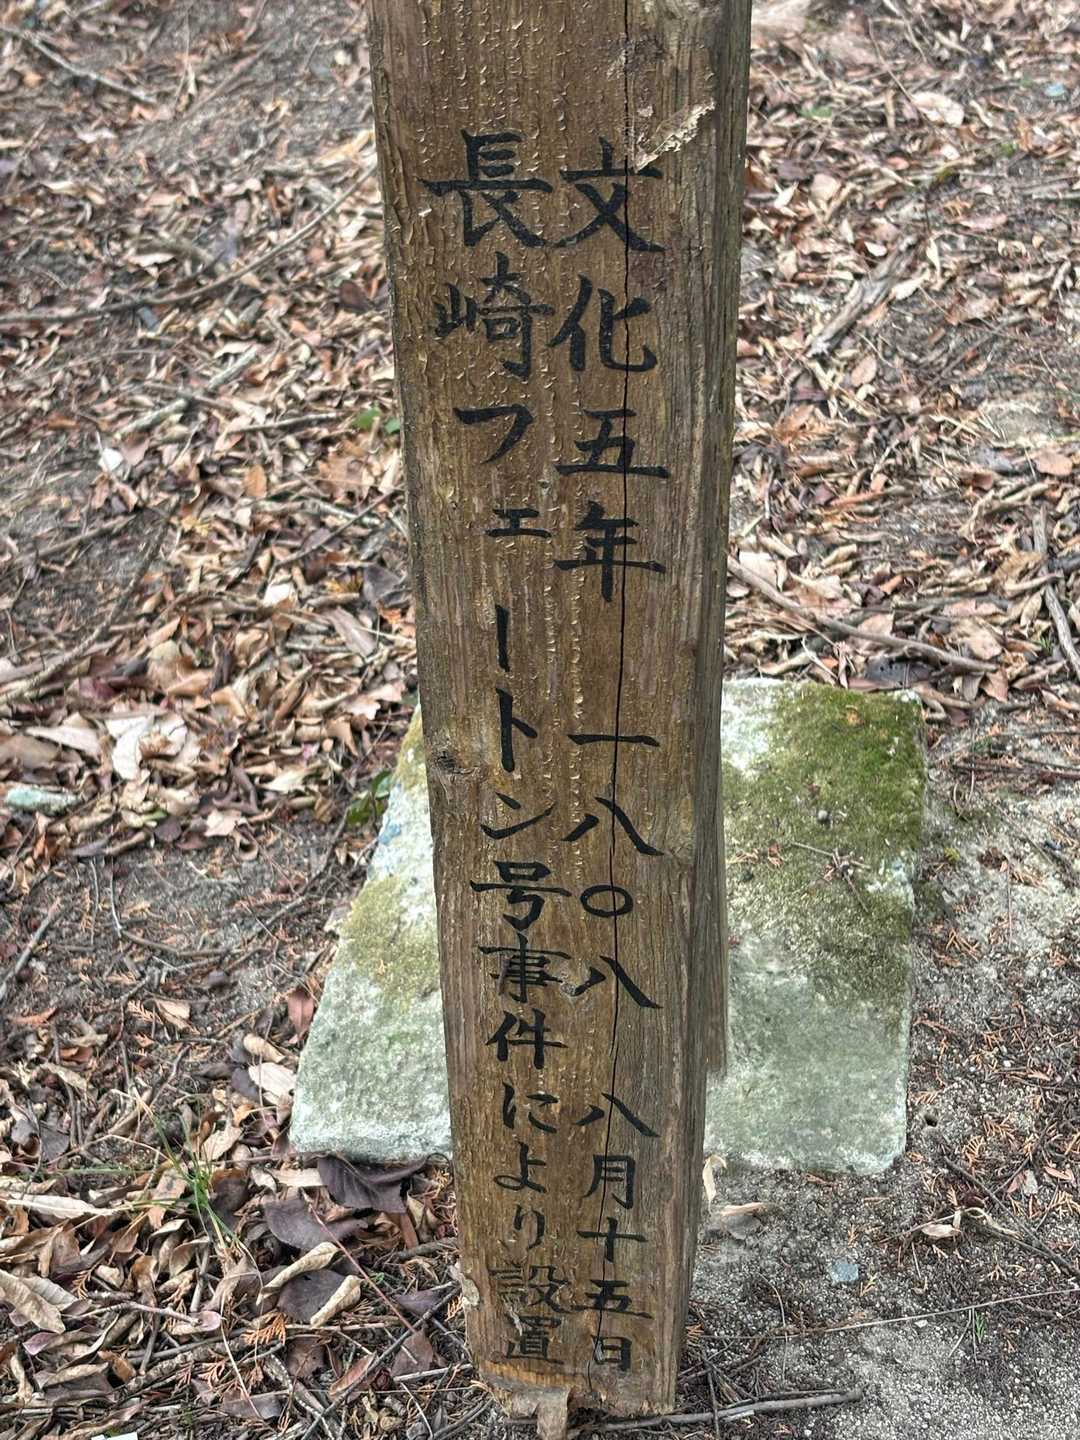 文化五年 一八〇八 八月十五日
長崎フェートン号事件により設置